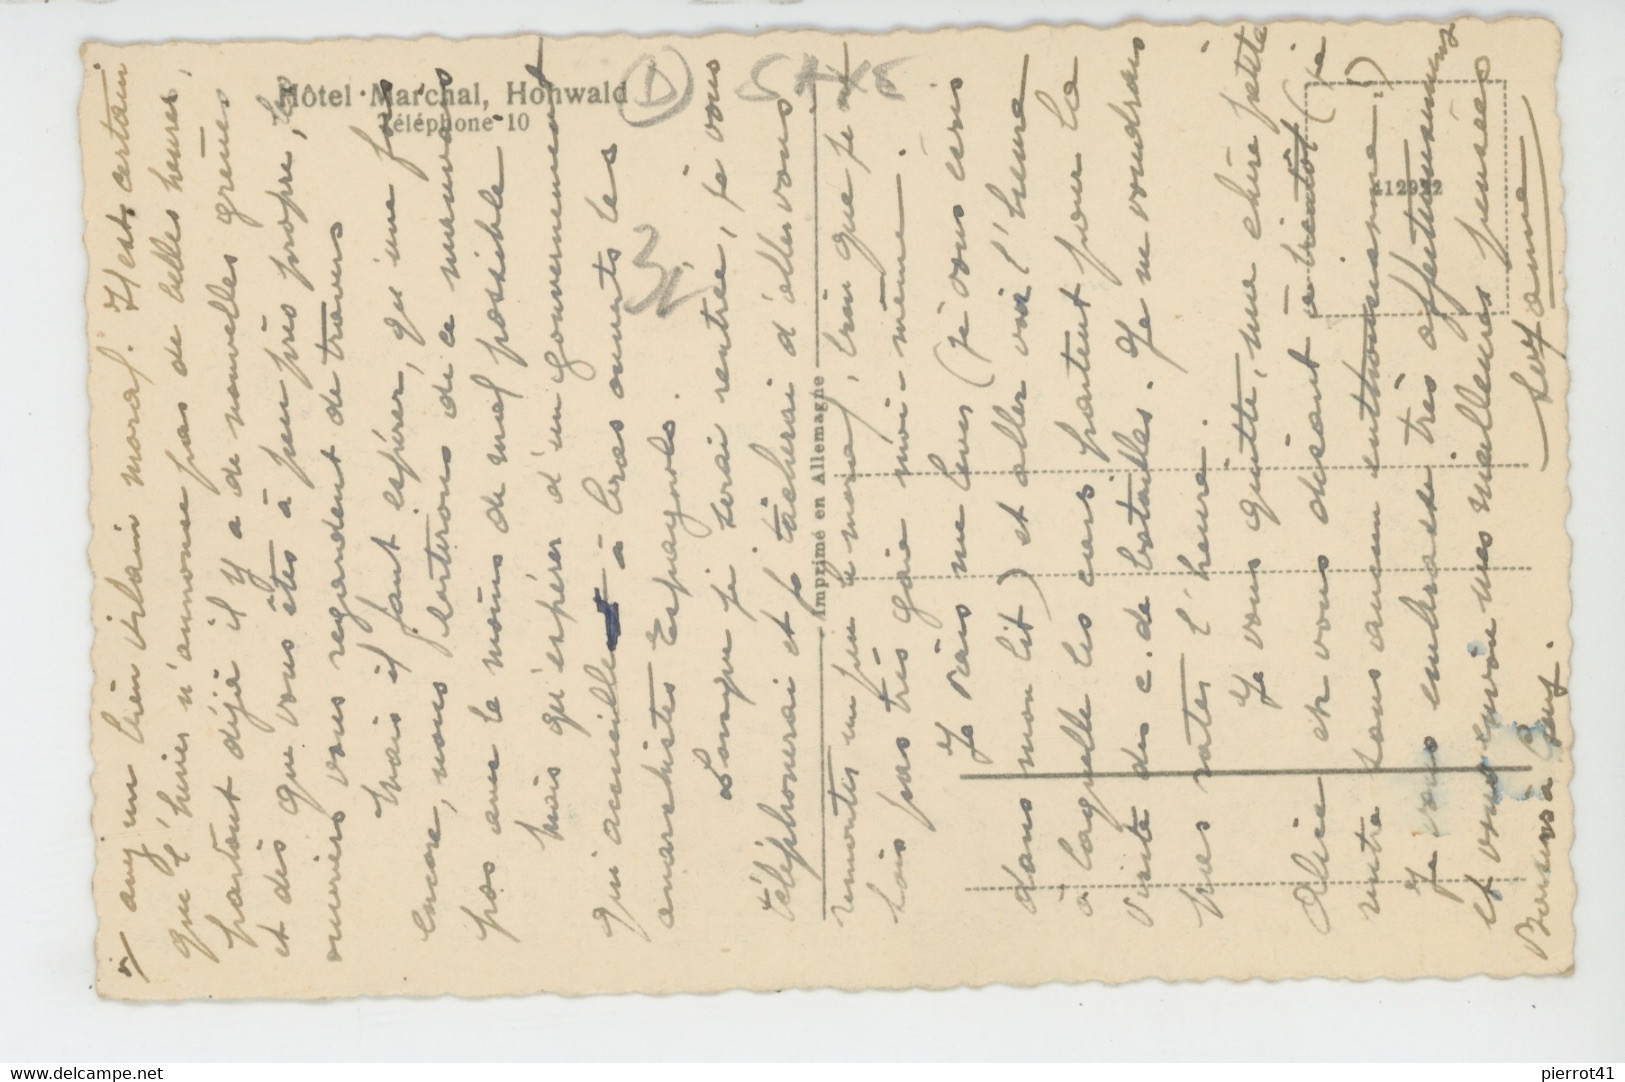 Hôtel Marchal, Hohwald
Téléphone 10
D
Imprimé en Allemagne
412922
un bien vilain moral. Il est certain
que l'hiver n'annonce pas de belles heures,
partout déjà il y a de nouvelles grèves
et dès que vous êtes à peu près propre, les
ouvriers vous regardent de travers
Mais il faut espérer, qu'une fois
encore, nous sortirons de ce mauvais
pas avec le moins de mal possible
Mais qu'espérer d'un gouvernement
qui accueille à bras ouverts les
anarchistes Espagnols.
Lorsque je serai rentrée, je vous
téléphonerai et je tâcherai d'aller vous
remonter un peu le moral, bien que je ne
sois pas très gaie moi-même.
Je vais me lever (je vous écris
dans mon lit) et aller voir l'heure
à laquelle les cars partent pour la
visite des c. de batailles. Je ne voudrais
pas rater l'heure.
Je vous quitte, ma chère petite
Alice en vous disant à bientôt (je
rentre sans aucun enthousiasme.)
Je vous embrasse très affectueusement
et vous envoie mes meilleures pensées
Suzanne
Baisers à
pierrot41